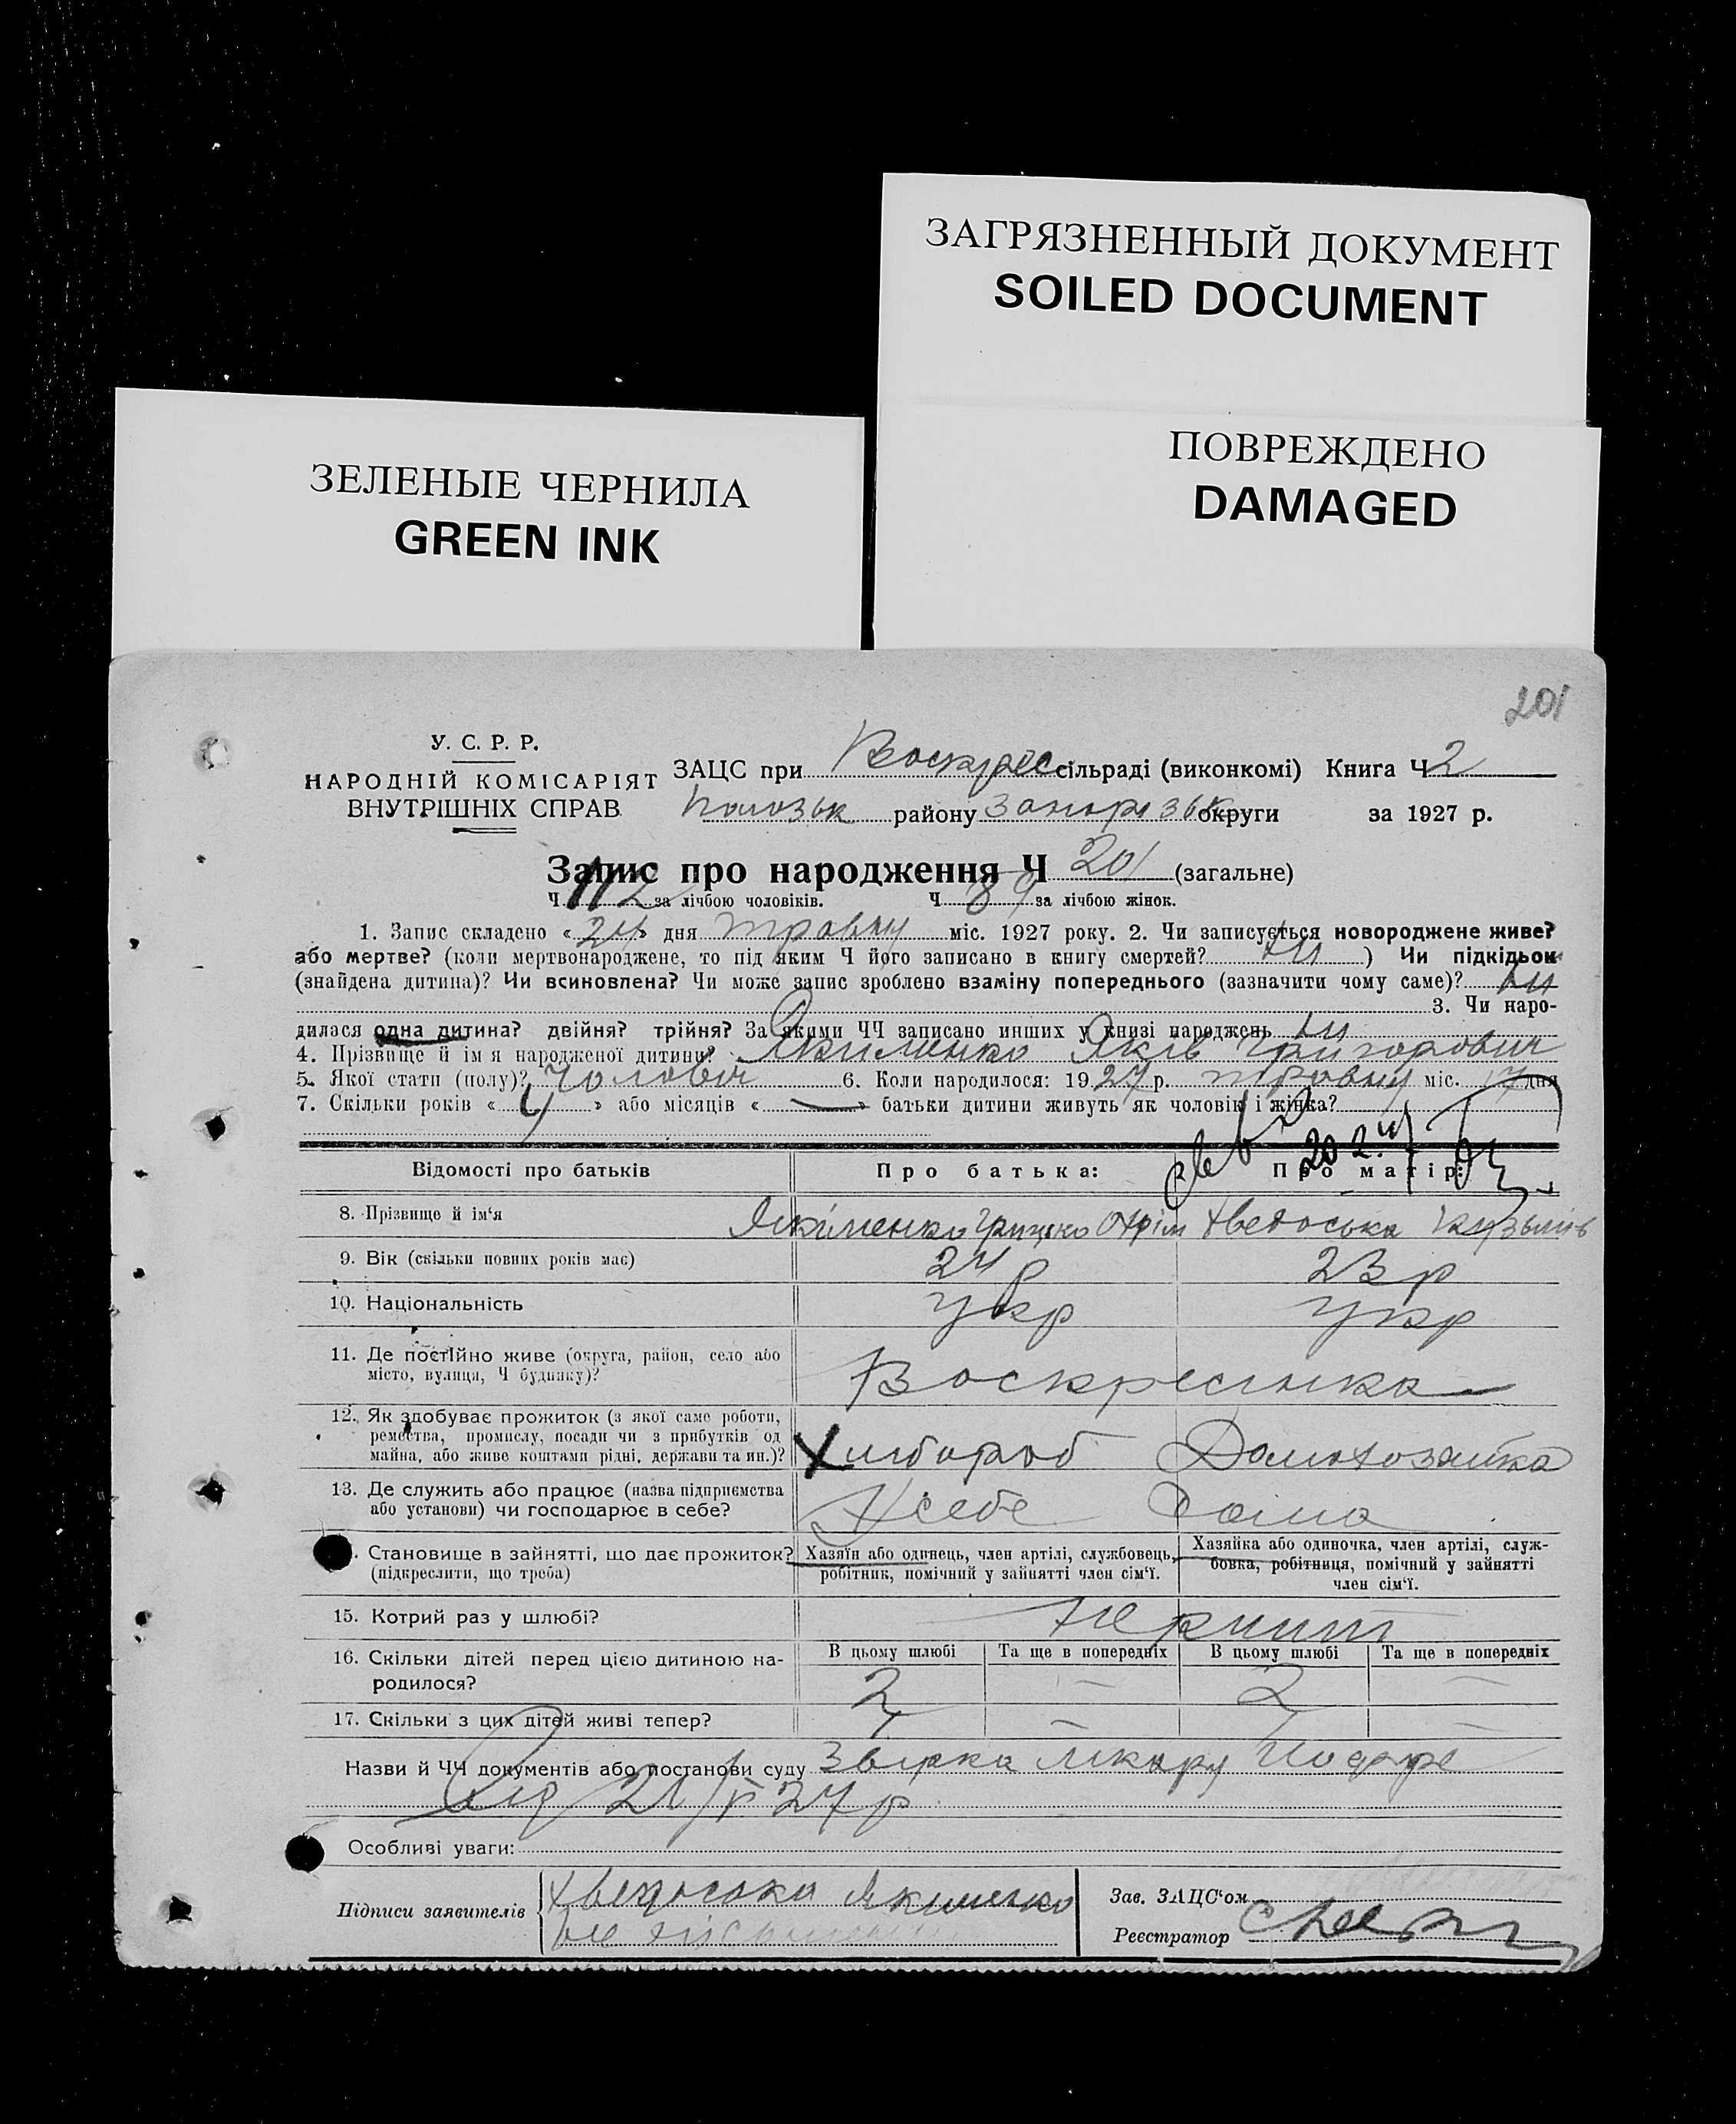 ЗАГРЯЗНЕННЫЙ ДОКУМЕНТ
SOILED DOCUMENT
ПОВРЕЖДЕНО
DAMAGED
ЗЕЛЕНЫЕ ЧЕРНИЛА
GREEN INK
201
У. С. Р. Р.
НАРОДНІЙ КОМІСАРІЯТ
ВНУТРІШНІХ СПРАВ
ЗАЦС при Воскрес сільраді (виконкомі) Книга Ч 2
району округи за 1927 р.
Запис про народження Ч 201 (загальне)
Ч 112 за лічбою чоловіків. Ч 89 за лічбою жінок.
1. Запис складено « 24 » дня травну міс. 1927 року. 2. Чи записується новороджене живе?
або мертве? (коли мертвонароджене, то під яким Ч його записано в книгу смертей? ) Чи підкідьок
(знайдена дитина)? Чи всиновлена? Чи може запис зроблено взаміну попереднього (зазначити чому саме)?
3. Чи наро-
дилася одна дитина? двійня? трійня? За якими ЧЧ записано инших у книзі народжень
4. Прізвище й ім'я народженої дитини? Якименко Яків Григорович
5. Якої стати (полу)? чоловіч 6. Коли народилося: 19 27 р. травну міс. 17 дня
7. Скільки років « 4 » або місяців « — » батьки дитини живуть як чоловік і жінка?
Відомості про батьків Про батька: Про матір:
8. Прізвище й ім'я Якименко Грицько Охрім Хведоська
9. Вік (скільки повних років має) 24 р 23 р
10. Національність Укр Укр
11. Де постійно живе (округа, район, село або
місто, вулиця, Ч будинку)? Воскресенка
12. Як здобуває прожиток (з якої саме роботи,
ремества, промислу, посади чи з прибутків од
майна, або живе коштами рідні, держави та ин.)? Хлібороб Домохозяйка
13. Де служить або працює (назва підприємства
або установи) чи господарює в себе? У себе Дома
Становище в зайнятті, що дає прожиток?
(підкреслити, що треба)
Хазяїн або одинець, член артілі, службовець,
робітник, помічний у зайнятті член сім'ї.
Хазяйка або одиночка, член артілі, служ-
бовка, робітниця, помічний у зайнятті
член сім'ї.
15. Котрий раз у шлюбі?
16. Скільки дітей перед цією дитиною на-
родилося?
В цьому шлюбі Та ще в попередніх В цьому шлюбі Та ще в попередніх
2 — 2 —
17. Скільки з цих дітей живі тепер?
Назви й ЧЧ документів або постанови суду
21/V 27 р
Особливі уваги:
Підписи заявителів Хведоська Якименко
Зав. ЗАЦС'ом
Реєстратор